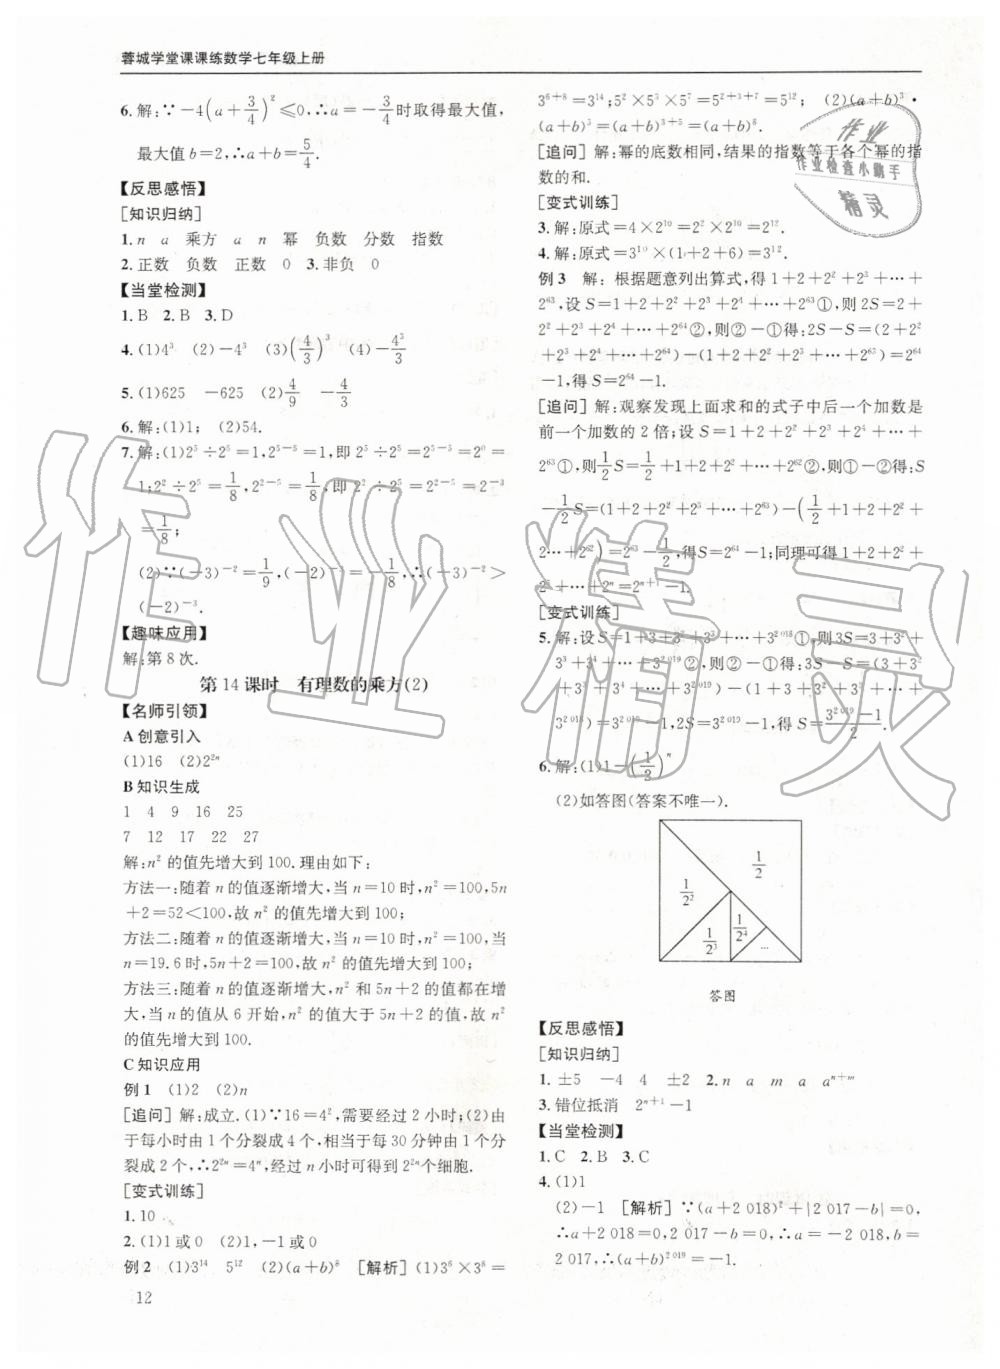 蓉城学堂课课练数学七年级上册
6. 解:∵-4(a+3/4)²≤0,∴a=-3/4时取得最大值,
最大值b=2,∴a+b=5/4.
【反思感悟】
[知识归纳]
1. n a 乘方 a n 幂 负数 分数 指数
2. 正数 负数 正数 0 3. 非负 0
【当堂检测】
1. B 2. B 3. D
4. (1)4³ (2)-4³ (3)(4/3)³ (4)-4³/3
5. (1)625 -625 (2)4/9 -4/3
6. 解:(1)1; (2)54.
7. 解:(1)2⁵÷2⁵=1,2⁵⁻⁵=1,即2⁵÷2⁵=2⁵⁻⁵=2⁰=
1;2²÷2⁵=1/8,2²⁻⁵=1/8,即2²÷2⁵=2²⁻⁵=2⁻³
=1/8;
(2)∵(-3)⁻²=1/9,(-2)⁻³=-1/8,∴(-3)⁻²>
(-2)⁻³.
【趣味应用】
解:第8次.
第14课时 有理数的乘方(2)
【名师引领】
A 创意引入
(1)16 (2)2²ⁿ
B 知识生成
1 4 9 16 25
7 12 17 22 27
解:n²的值先增大到100.理由如下:
方法一:随着n的值逐渐增大,当n=10时,n²=100,5n
+2=52<100,故n²的值先增大到100;
方法二:随着n的值逐渐增大,当n=10时,n²=100,当
n=19.6时,5n+2=100,故n²的值先增大到100;
方法三:随着n的值逐渐增大,n²和5n+2的值都在增
大,当n的值从6开始,n²的值大于5n+2的值,故n²
的值先增大到100.
C 知识应用
例1 (1)2 (2)n
[追问] 解:成立.(1)∵16=4²,需要经过2小时;(2)由
于每小时由1个分裂成4个,相当于每30分钟由1个分
裂成2个,∴2²ⁿ=4ⁿ,经过n小时可得到2²ⁿ个细胞.
[变式训练]
1. 10
2. (1)1或0 (2)1,-1或0
例2 (1)3¹⁴ 5¹² (2)(a+b)⁸ [解析](1)3⁶×3⁸=
12
3⁶⁺⁸=3¹⁴;5²×5³×5⁷=5²⁺³⁺⁷=5¹²; (2)(a+b)³·
(a+b)⁵=(a+b)³⁺⁵=(a+b)⁸.
[追问] 解:幂的底数相同,结果的指数等于各个幂的指
数的和.
[变式训练]
3. 解:原式=4×2¹⁰=2²×2¹⁰=2¹².
4. 解:原式=3¹⁰×(1+2+6)=3¹².
例3 解:根据题意列出算式,得1+2+2²+2³+…+
2⁶³,设S=1+2+2²+2³+2⁴+…+2⁶³①,则2S=2+
2²+2³+2⁴+…+2⁶⁴②,则②-①得:2S-S=(2+2²
+2³+2⁴+…+2⁶⁴)-(1+2+2²+2³+…+2⁶³)=2⁶⁴
-1,得S=2⁶⁴-1.
[追问] 解:观察发现上面求和的式子中后一个加数是
前一个加数的2倍;设S=1+2+2²+2³+2⁴+…+
2⁶³①,则1/2S=1/2+1+2+2²+2³+…+2⁶²②,得:S
-1/2S=(1+2+2²+2³+…+2⁶³)-(1/2+1+2+2²+
2³…+2⁶²)=2⁶³-1/2,得S=2⁶⁴-1;同理可得1+2+2²+
2³+…+2ⁿ=2ⁿ⁺¹-1.
[变式训练]
5. 解:设S=1+3+3²+3³+…+3²⁰¹⁸①,则3S=3+3²+
3³+3⁴+…+3²⁰¹⁹②,②-①得:3S-S=(3+3²+
3³+3⁴+…+3²⁰¹⁹)-(1+3+3²+3³+3⁴+…+
3²⁰¹⁸)=3²⁰¹⁹-1,2S=3²⁰¹⁹-1,得S=(3²⁰¹⁹-1)/2.
6. 解:(1)1-(1/3)ⁿ
(2)如答图(答案不唯一).
1/2
1/2²
1/2³
1/2⁴
…
答图
【反思感悟】
[知识归纳]
1. ±5 -4 4 ±2 2. n a m a aⁿ⁺ᵐ
3. 错位抵消 2ⁿ⁺¹-1
【当堂检测】
1. C 2. B 3. C
4. (1)1
(2)-1 [解析]∵(a+2 018)²+|2 017-b|=0,
∴a+2 018=0,2 017-b=0,∴a=-2 018,b=
2 017,∴(a+b)²⁰¹⁹=-1.
作业
作业检查小助手
精灵
作业精灵